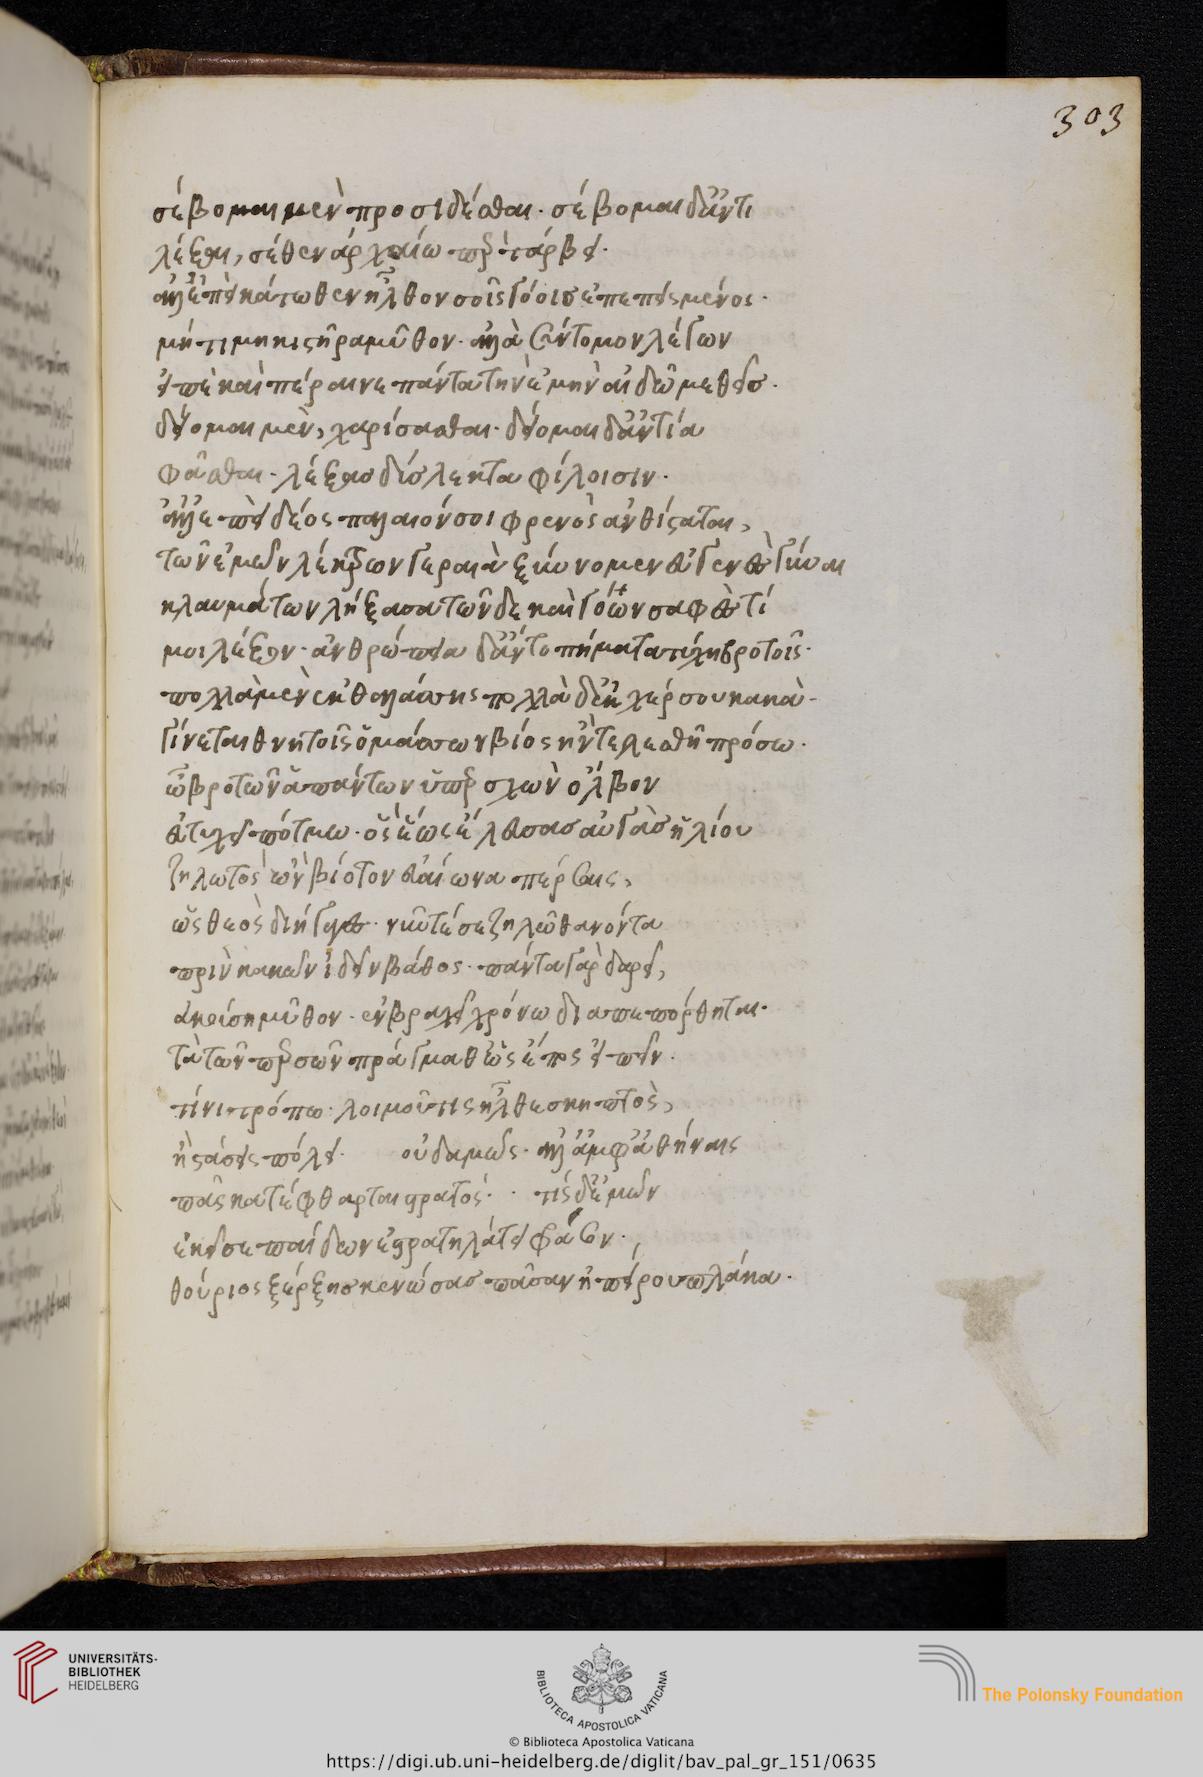 303
σέβομαι μὲν προσιδέσθαι· σέβομαι δ' ἀντί
λέξαι, σέθεν ἀρχαίω περὶ τάρβει·
ἀλλ' ἐπεὶ κάτωθεν ἦλθον σοῖς γόοισι πεπεισμένος·
μή τι μηκιστῆρα μῦθον· ἀλλὰ σύντομον λέγων
εἰπὲ καὶ πέραινε πάντα τὴν ἐμὴν αἰδῶ μεθείσ·
δείομαι μὲν, χαρίσασθαι· δείομαι δ' ἀντία
φᾶσθαι· λέξασ δίσλεκτα φίλοισιν·
ἀλλ' ἐπεὶ δέος παλαιόν σοι φρενὸς ἀνθίσταται,
τῶν ἐμῶν λέκτρων γεραιὰ ξύννομεν εὐγενὲς γύναι
κλαυμάτων λήξασα τῶνδε καὶ γόων σαφές τί
μοι λέξον· ἀνθρώπεια δ' ἄν τοι πήματα τύχῃ βροτοῖς·
πολλὰ μὲν ἐκ θαλάσσης πολλὰ δ' ἐκ χέρσου κακὰ·
γίνεται θνητοῖς ὁ μάσσων βίος ἢν τελεσθῇ πρόσω·
ὦ βροτῶν ἁπάντων ὑπερσχὼν ὄλβον
εὐτυχεῖ πότμω· ὃς ἕως ἔλευσσασ αὐγὰσ ἡλίου
ζηλωτὸς ὢν βίοτον εὐαίωνα πέρσαις,
ὡς θεὸς διήγαγες· νῦν τέ σε ζηλῶ θανόντα
πρὶν κακῶν ἰδεῖν βάθος· πάντα γὰρ δαρεῖ,
ἀκούσῃ μῦθον· ἐν βραχεῖ χρόνω διαπεπόρθηται·
τὰ τῶν περσῶν πράγμαθ' ὡς ἔπος εἰπεῖν·
τίνι τρόπω· λοιμοῦ τις ἦλθε σκηπτὸς,
ἢ στάσις πόλει· οὐδαμῶς· ἀλλ' ἀμφ' ἀθήναις
πᾶς κατέφθαρται στρατός· τίς δ' ἐμῶν
ἐκεῖσε παίδων ἐστρατηλάτει φράσον·
θούριος ξέρξης κενώσασ πᾶσαν ἠπείρου πλάκα·
UNIVERSITÄTS-
BIBLIOTHEK
HEIDELBERG
BIBLIOTECA APOSTOLICA VATICANA
The Polonsky Foundation
© Biblioteca Apostolica Vaticana
https://digi.ub.uni-heidelberg.de/diglit/bav_pal_gr_151/0635